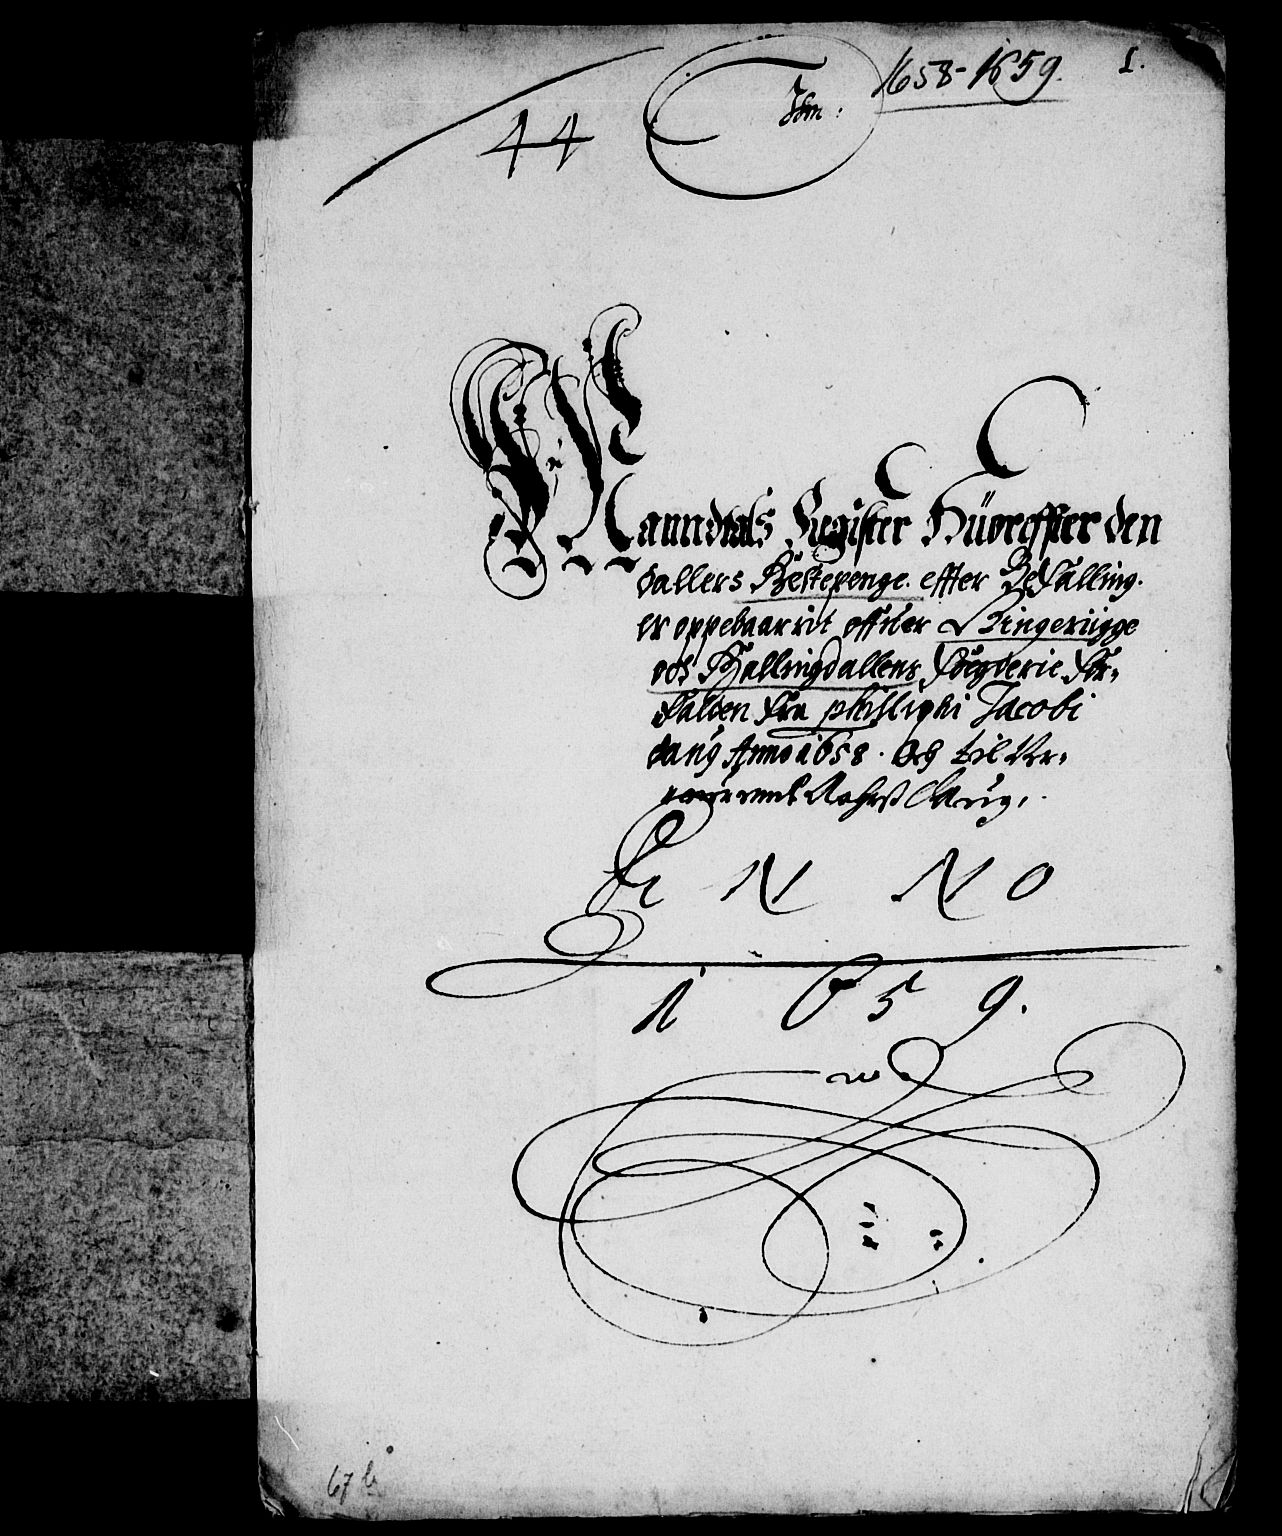 1658-1659.
1.
44
Manndtals Register Huoreffter den
dallers Hestepenge effter Befalling
er oppebaarrit offuer Ringeriigge
och Hallingdallens Fougderie For-
falden fra Philliphi Jacobi
daug Anno 1658. Och til
daug.
ANNO
1659.
67 b